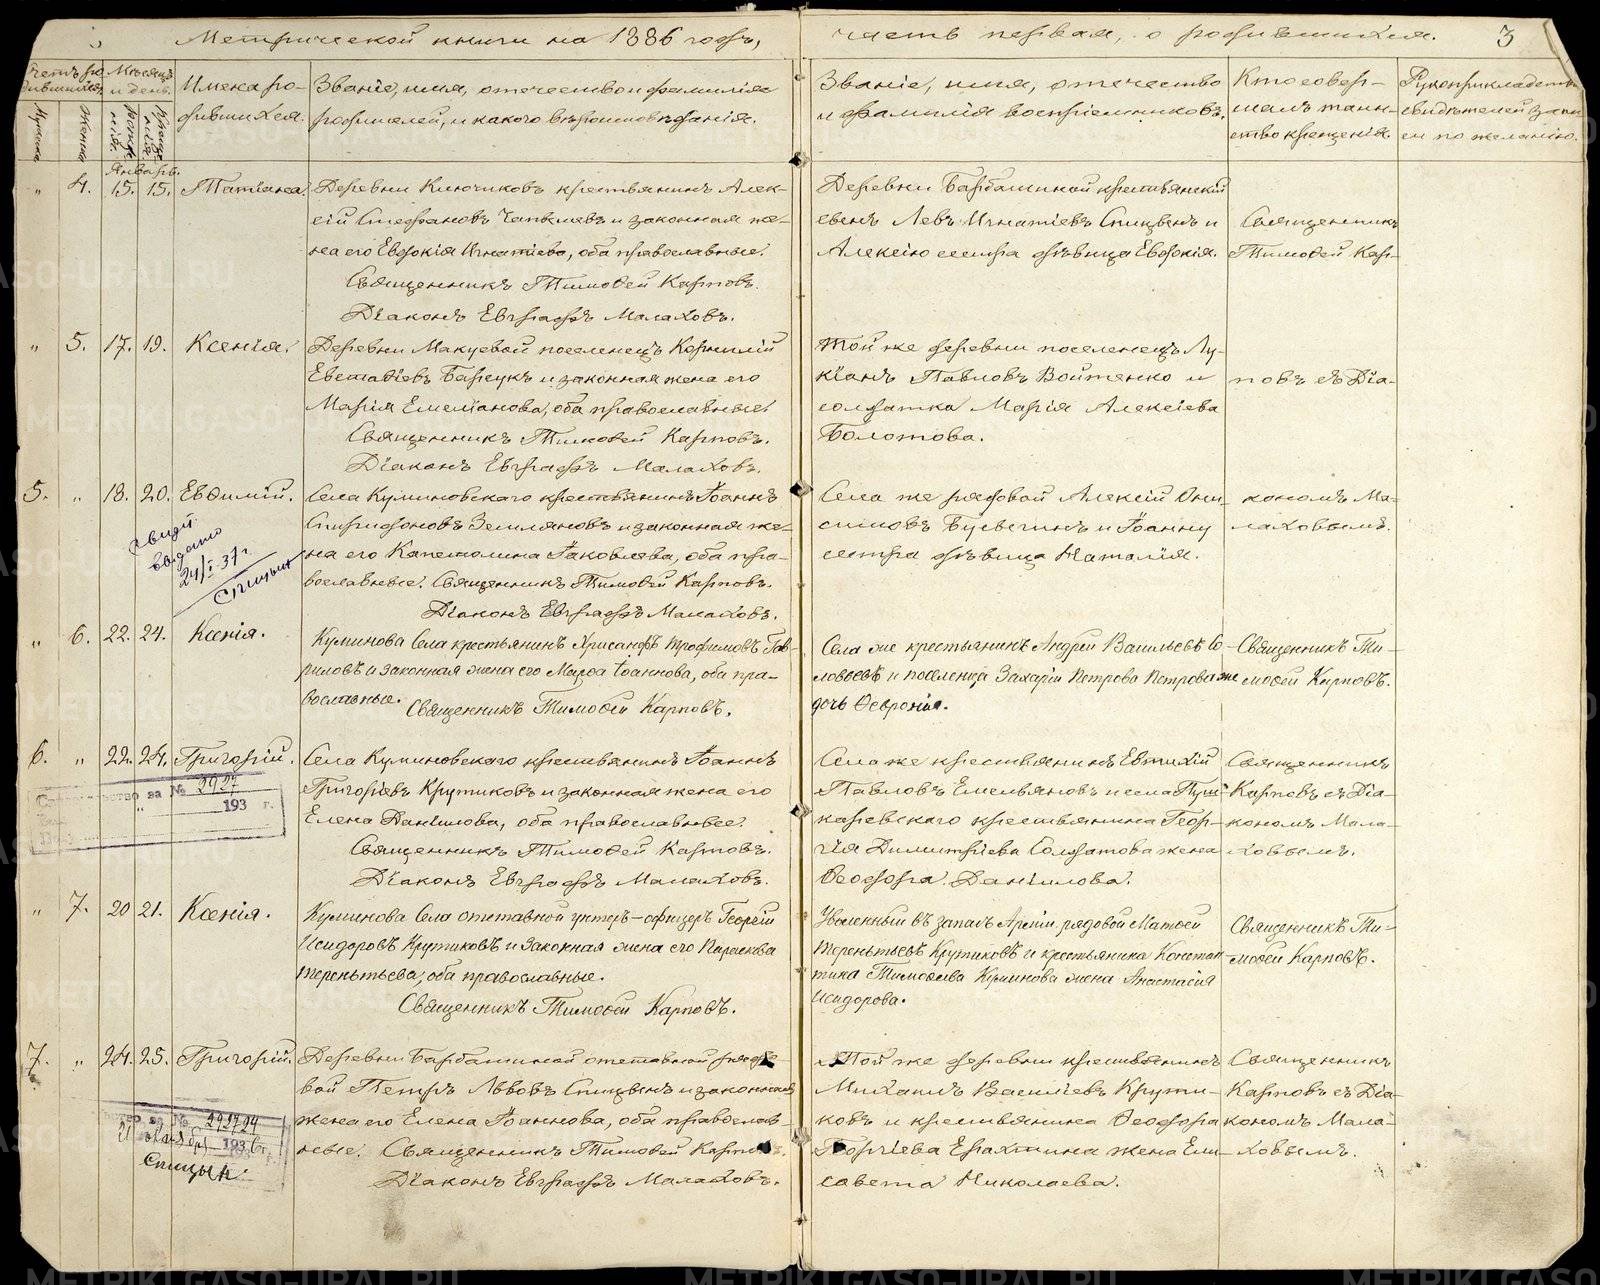 Метрической книги на 1886 годъ,
часть первая, о родившихся.
3
Счетъ родившихся
Мѣсяцъ и день
Имена родившихся.
Званіе, имя, отечество и фамилія
родителей, и какого вѣроисповѣданія.
Званіе, имя, отечество
и фамилія воспріемниковъ.
Кто совер-
шалъ таин-
ство крещенія.
Рукоприкладство
свидѣтелей запи
си по желанію.
Мужска
Женска
Январь.
" 4. 15. 15. Татіана.
Деревни Ключиковъ крестьянинъ Алек-
сій Стефановъ и законная же-
на его Евдокія Игнатіева, оба православные.
Священникъ Тимоѳей Карповъ.
Діаконъ Евграфъ Малаховъ.
Деревни Барбашиной крестьянскій
сынъ Левъ Игнатіевъ Спицынъ и
Алексію сестра дѣвица Евдокія.
Священникъ
Тимоѳей Кар-
" 5. 17. 19. Ксенія.
Деревни Макуевой поселенецъ Корнилій
Евстаѳіевъ Барсукъ и законная жена его
Марія Емеліанова, оба православные.
Священникъ Тимоѳей Карповъ.
Діаконъ Евграфъ Малаховъ.
Той же деревни поселенецъ Лу-
кіанъ Павловъ Войтенко и
солдатка Марія Алексіева
Болотова.
повъ съ Діа-
5. " 18. 20. Евѳимій.
Села Куминовскаго крестьянинъ Іоаннъ
Спиридоновъ Земляновъ и законная же-
на его Капетолина Іаковлева, оба пра-
вославные. Священникъ Тимоѳей Карповъ.
Діаконъ Евграфъ Малаховъ.
Села же рядовой Алексій Они
симовъ и Іоанну
сестра дѣвица Наталія.
кономъ Ма-
лаховымъ.
свид
выдано
24/I-37г
Спицын
" 6. 22. 24. Ксенія.
Куминова Села крестьянинъ Хрисанфъ Трофимовъ Гав-
риловъ и законная жена его Марѳа Іоаннова, оба пра-
вославные. Священникъ Тимоѳей Карповъ.
Села же крестьянинъ Андрей Васильевъ Со-
ловьевъ и поселенца Захарія Петрова Петрова же
дочь Ѳеврония.
Священникъ Ти-
моѳей Карповъ.
6. " 22. 24. Григорій.
Села Куминовскаго крестьянинъ Іоаннъ
Григоріевъ Крутиковъ и законная жена его
Елена Даніилова, оба православные.
Священникъ Тимоѳей Карповъ.
Діаконъ Евграфъ Малаховъ.
Села же крестьянинъ Евтихій
Павловъ Емельяновъ и села Пуш-
каревскаго крестьянина Геор-
гія Димитріева Солдатова жена
Ѳеодора Даніилова.
Священникъ
Карповъ съ Діа-
кономъ Мала-
ховымъ.
ство за № 2927
193 г.
" 7. 20 21. Ксенія.
Куминова Села отставной унтеръ-офицеръ Георгій
Исидоровъ Крутиковъ и законная жена его Параскева
Терентьева, оба православные.
Священникъ Тимоѳей Карповъ.
Уволенный въ запасъ Арміи рядовой Матѳей
Терентьевъ Крутиковъ и крестьянина Констан
тина Тимоѳеева Куминова жена Анастасія
Исидорова.
Священникъ Ти-
моѳей Карповъ.
7. " 24. 25. Григорій.
Деревни Барбашиной отставной рядо-
вой Петръ Львовъ Спицынъ и законная
жена его Елена Іоаннова, оба православ-
ные. Священникъ Тимоѳей Карповъ.
Діаконъ Евграфъ Малаховъ.
Той же деревни крестьянинъ
Михаилъ Василіевъ Крути-
ковъ и крестьянина Ѳеодора
Георгіева Ерахтина жена Ели-
савета Николаева.
Священникъ
Карповъ съ Діа-
кономъ Мала-
ховымъ.
за № 292724
193 6 г.
Спицын
METRIKI.GASO-URAL.RU